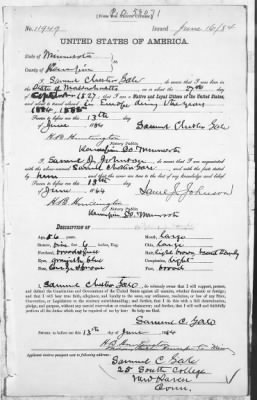 No. 11949
Issued June 16/84
UNITED STATES OF AMERICA.
State of Minnesota
County of Hennepin
I Samuel Chester Gale do swear that I was born in
the State of Massachusetts on or about the 27th day
of 1827, that I am a Native and Loyal Citizen of the United States,
and about to travel abroad in Europe during the years
1884, 1885
Sworn to before me this 13th
day of June 1884
Samuel Chester Gale
H.B. Huntington
Notary Public
Hennepin Co. Minnesota
I, Samuel J. Johnson do swear that I am acquainted
with the above named Samuel Chester Gale, and with the facts stated
by him and that the same are true to the best of my knowledge and belief
Sworn to before me this 13th
day of June 1884
Saml J. Johnson
H.B. Huntington
Notary Public
Hennepin Co. Minnesota
DESCRIPTION OF
Age, 56
Mouth, large
Stature, five ft 6 inches, Eng.
Chin, large
Forehead,
Hair, light brown
Eyes, grayish blue
Complexion, light
Nose,
Face, broad
I, Samuel Chester Gale, do solemnly swear that I will support, protect,
and defend the Constitution and Government of the United States against all enemies, whether domestic or foreign;
and that I will bear true faith, allegiance, and loyalty to the same, any ordinance, resolution, or law of any State,
Convention, or Legislature to the contrary notwithstanding; and further, that I do this with a full determination,
pledge, and purpose, without any mental reservation or evasion whatsoever; and further, that I will well and faithfully
perform all the duties which may be required of me by law: So help me God.
Samuel C. Gale
Sworn to before me this 13th day of June 1884
H.B. Huntington
Applicant desires passport sent to following address:
Samuel C. Gale
25 South College
New Haven
Conn.